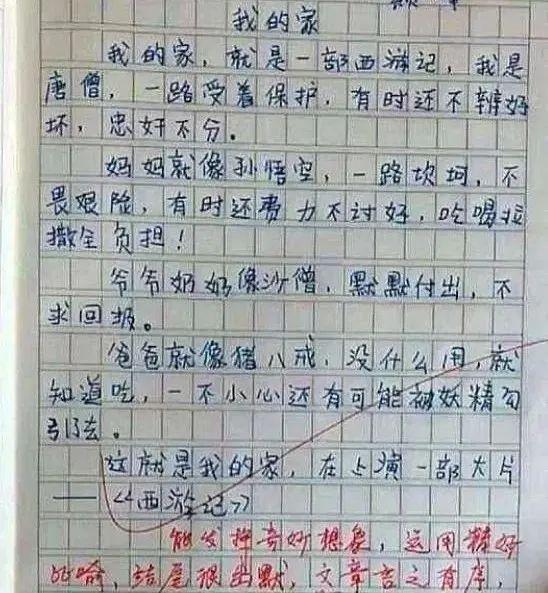 我的家
我的家，就是一部西游记，我是
唐僧，一路受着保护，有时还不辨好
坏，忠奸不分。
妈妈就像孙悟空，一路坎坷，不
畏艰险，有时还费力不讨好，吃喝拉
撒全负担！
爷爷奶奶像沙僧，默默付出，不
求回报。
爸爸就像猪八戒，没什么用，就
知道吃，一不小心还有可能被妖精勾
引去。
这就是我的家，在上演一部大片
——《西游记》
能发挥奇妙想象，运用精好
比喻，结尾很幽默，文章言之有序，